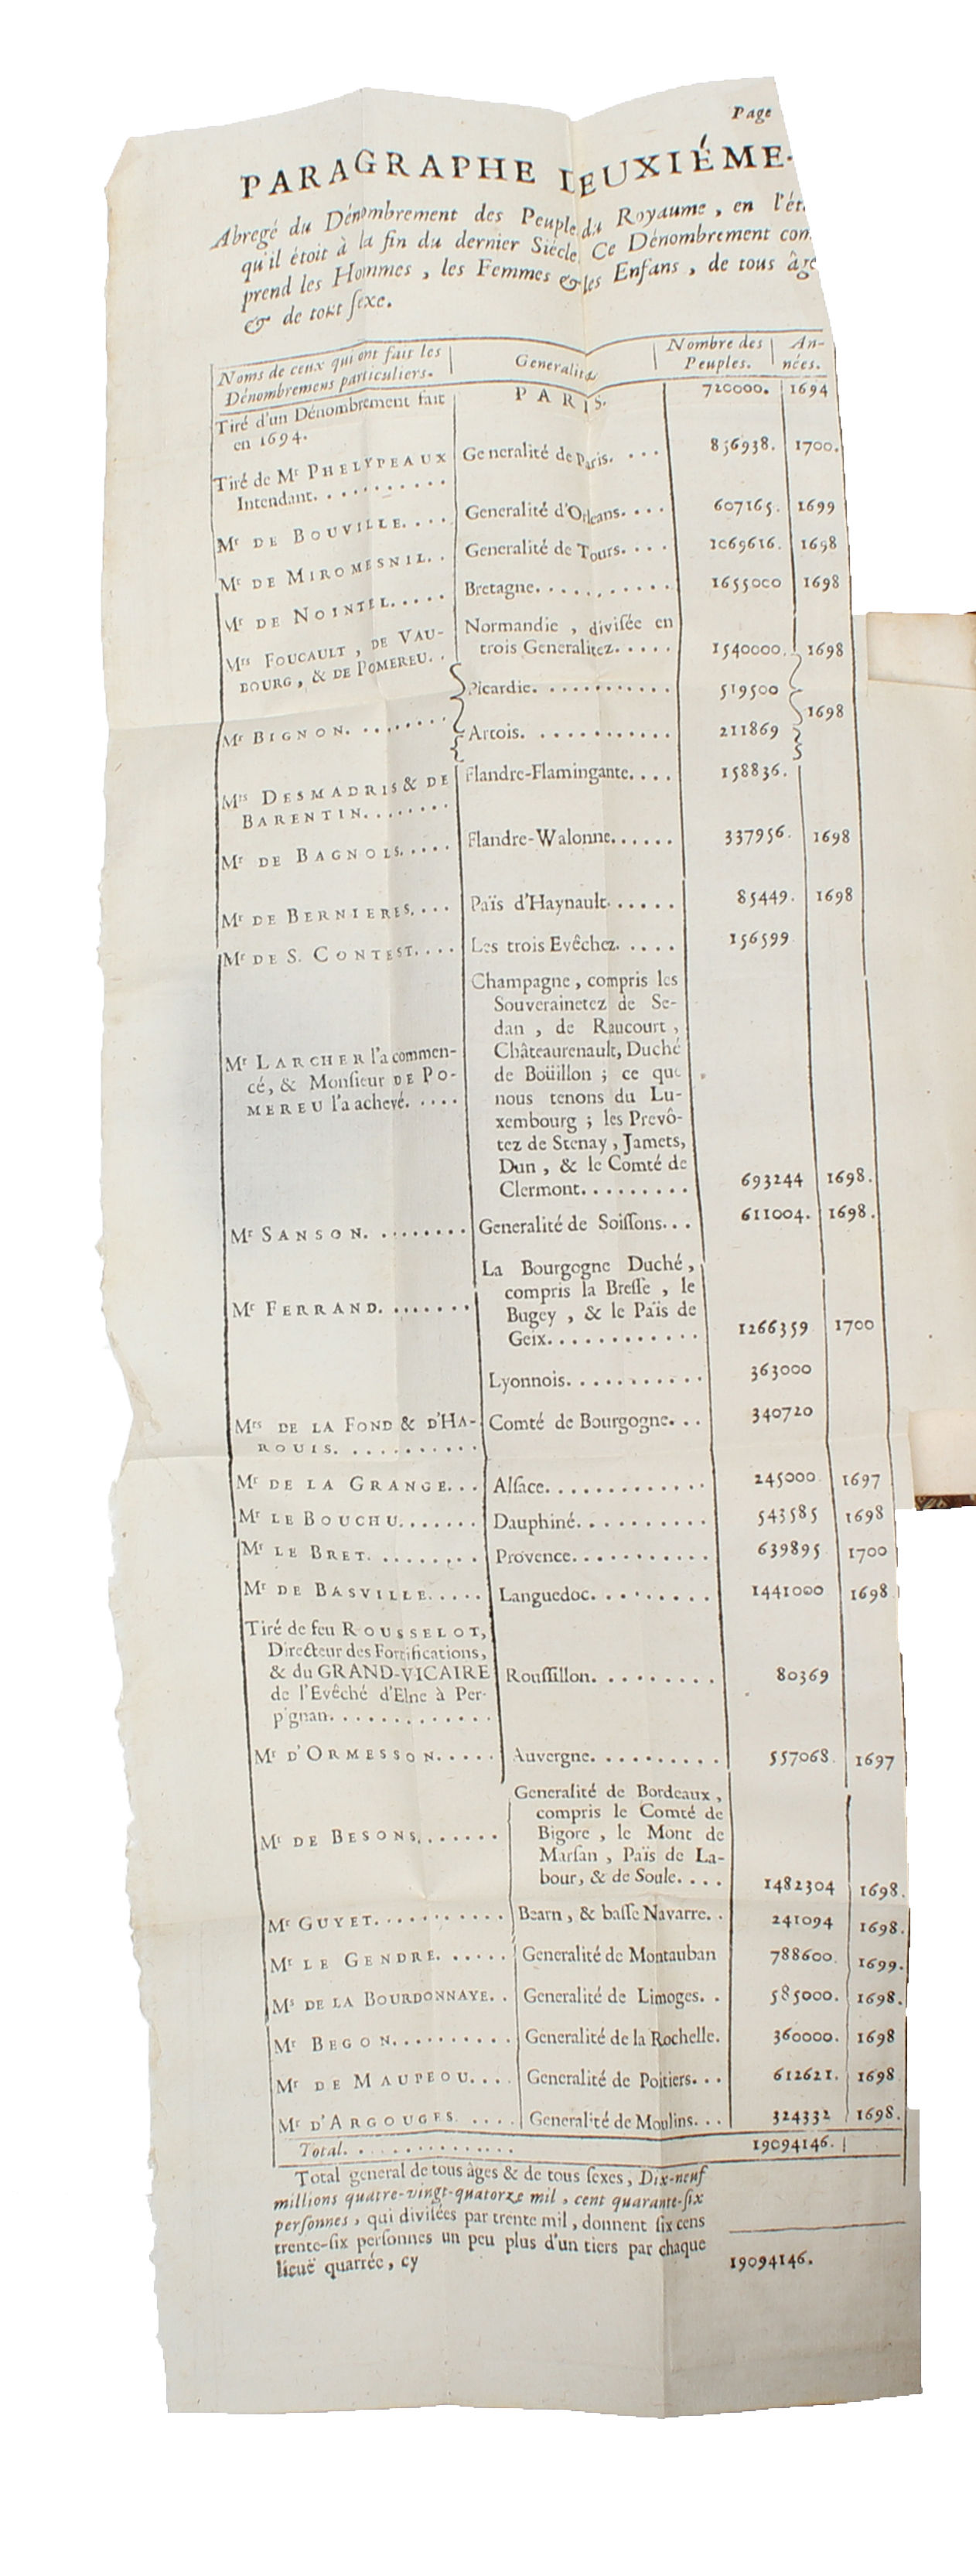 Page
PARAGRAPHE DEUXIÉME.
Abregé du Dénombrement des Peuples du Royaume, en l'ét
qu'il étoit à la fin du dernier Siécle Ce Dénombrement com
prend les Hommes, les Femmes & les Enfans, de tous âge
& de tout sexe.
Noms de ceux qui ont fait les Dénombremens particuliers. | Generalitez | Nombre des Peuples. | Années.
Tiré d'un Dénombrement fait PARIS. 720000. 1694
en 1694.
Tiré de Mr PHELYPEAUX Generalité de Paris. .... 856938. 1700.
Intendant. ...........
Mr DE BOUVILLE.... Generalité d'Orleans.... 607165. 1699
Mr DE MIROMESNIL.. Generalité de Tours.... 1069616. 1698
Mr DE NOINTEL..... Bretagne.......... 1655000 1698
Mrs FOUCAULT, DE VAU- Normandie, divisée en
BOURG, & DE POMEREU.. trois Generalitez..... 1540000. 1698
Mr BIGNON. ........ Picardie. ........... 519500 1698
Artois. ........... 211869
Mrs DESMADRIS & DE Flandre-Flamingante.... 158836.
BARENTIN........
Mr DE BAGNOLS..... Flandre-Walonne...... 337956. 1698
Mr DE BERNIERES.... Païs d'Haynault...... 85449. 1698
Mr DE S. CONTEST.... Les trois Evêchez. .... 156599
Mr LARCHER l'a commen-
cé, & Monsieur DE PO-
MEREU l'a achevé. ....
Champagne, compris les
Souverainetez de Se-
dan, de Raucourt,
Châteaurenault, Duché
de Boüillon; ce que
nous tenons du Lu-
xembourg; les Prevô-
tez de Stenay, Jamets,
Dun, & le Comté de
Clermont......... 693244 1698.
Mr SANSON. ........ Generalité de Soissons... 611004. 1698.
Mr FERRAND. .......
La Bourgogne Duché,
compris la Bresse, le
Bugey, & le Païs de
Geix............ 1266359 1700
Lyonnois........... 363000
Mrs DE LA FOND & D'HA- Comté de Bourgogne... 340720
ROUIS. ..........
Mr DE LA GRANGE... Alsace............. 245000. 1697
Mr LE BOUCHU....... Dauphiné.......... 543585 1698
Mr LE BRET. ........ Provence........... 639895 1700
Mr DE BASVILLE..... Languedoc.......... 1441000 1698
Tiré de feu ROUSSELOT,
Directeur des Fortifications,
& du GRAND-VICAIRE Roussillon. ........ 80369
de l'Evêché d'Elne à Per-
pignan.............
Mr D'ORMESSON..... Auvergne. ......... 557068. 1697
Mr DE BESONS.......
Generalité de Bordeaux,
compris le Comté de
Bigore, le Mont de
Marsan, Païs de La-
bour, & de Soule.... 1482304 1698.
Mr GUYET........... Bearn, & basse Navarre.. 241094 1698.
Mr LE GENDRE. ..... Generalité de Montauban 788600. 1699.
Ms DE LA BOURDONNAYE. . Generalité de Limoges. . 585000. 1698.
Mr BEGON.......... Generalité de la Rochelle. 360000. 1698
Mr DE MAUPEOU.... Generalité de Poitiers... 612621. 1698
Mr D'ARGOUGES. .... Generalité de Moulins... 324332 1698.
Total. .............. 19094146.
Total general de tous âges & de tous sexes, Dix-neuf
millions quatre-vingt-quatorze mil, cent quarante-six
personnes, qui divisées par trente mil, donnent six cens
trente-six personnes un peu plus d'un tiers par chaque
lieuë quarrée, cy 19094146.